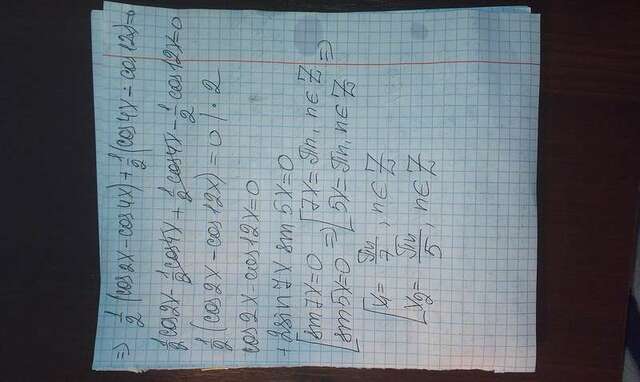 ⇒ 1/2 (cos2x - cos4x) + 1/2 (cos4x - cos12x)=0
1/2 cos2x - 1/2 cos4x + 1/2 cos4x - 1/2 cos12x=0
1/2 (cos2x - cos12x) = 0 | · 2
cos2x - cos12x=0
+2sin7x sin5x=0
[sin7x=0 ⇒ [7x=πn, n∈Z
[sin5x=0 ⇒ [5x=πn, n∈Z ⇒
[x₁= πn/7, n∈Z
[x₂= πn/5, n∈Z